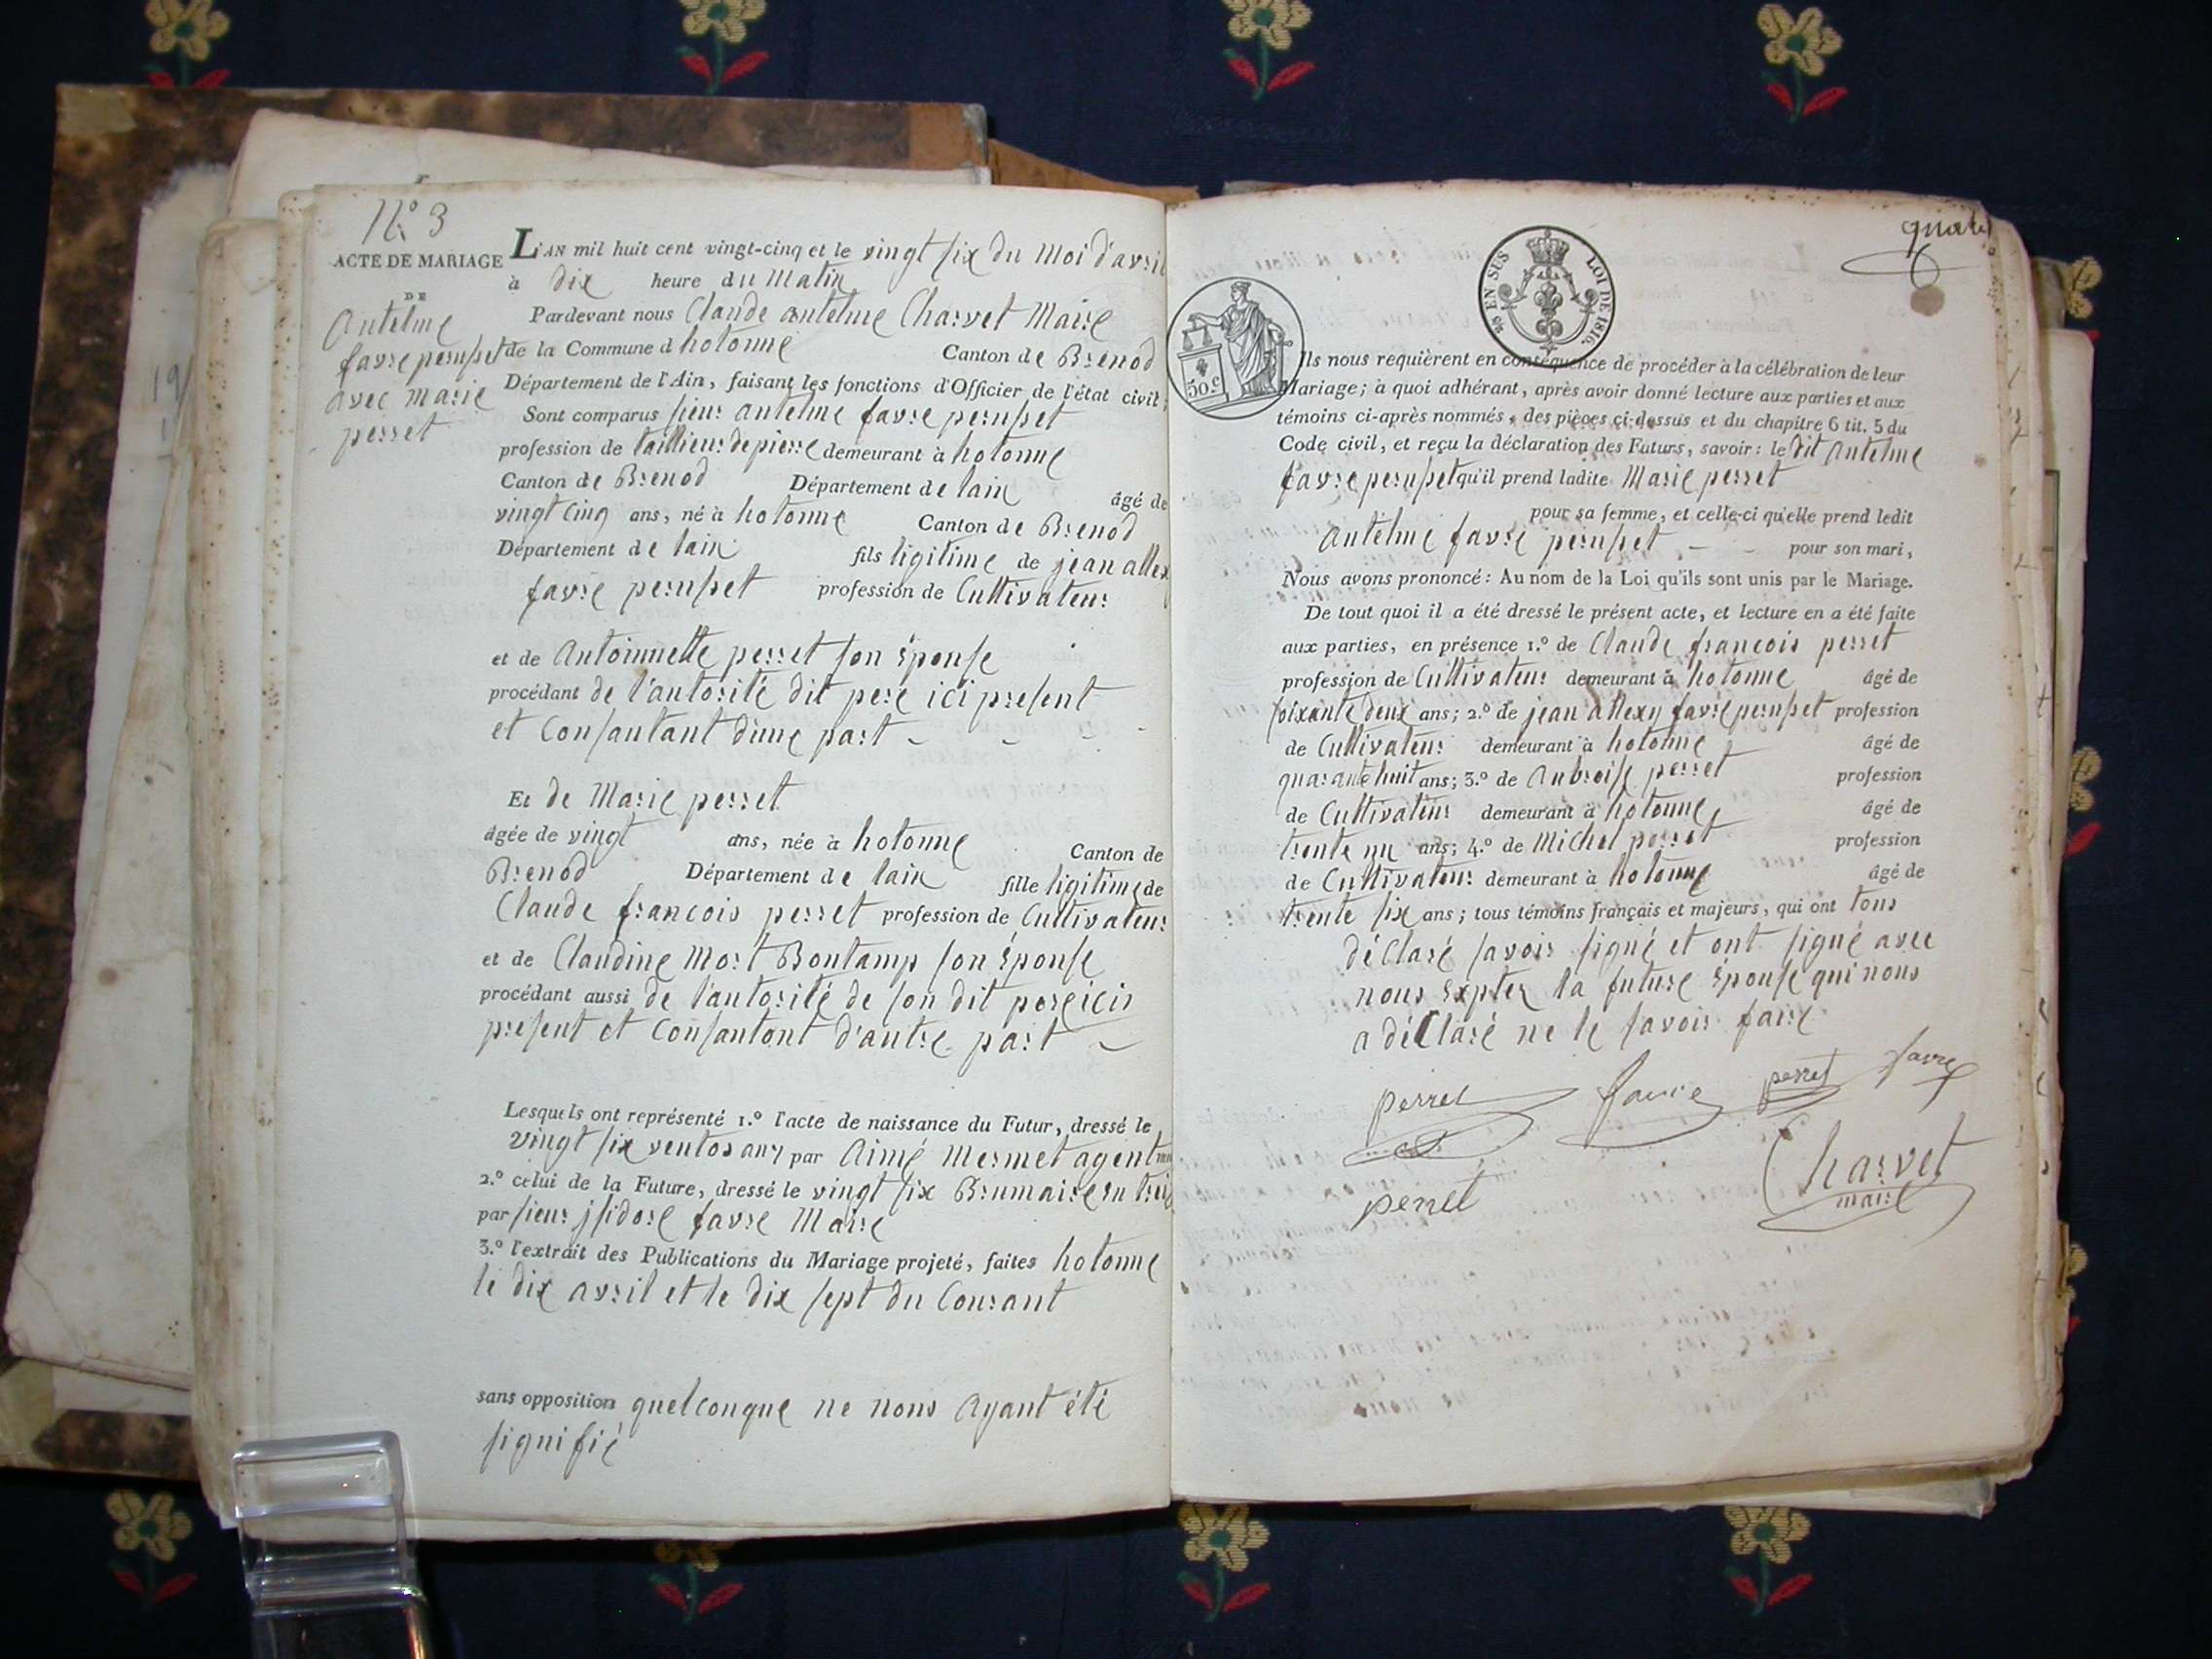 N.º 3
ACTE DE MARIAGE
DE
Antelme
favre perusset
avec Marie
perret
L'AN mil huit cent vingt-cinq et le vingt six du Moi d'avril
à dix heure du Matin
Pardevant nous Claude antelme Charvet Maire
de la Commune d hotonne Canton de Brenod
Département de l'Ain, faisant les fonctions d'Officier de l'état civil;
Sont comparus sieur antelme favre perusset
profession de taillieur de pierre demeurant à hotonne
Canton de Brenod Département de lain âgé de
vingt cinq ans, né à hotonne Canton de Brenod
Département de lain fils ligitime de jean allex
favre perusset profession de Cultivateur
et de Antoinnette perret son Épouse
procédant de l'autorité dit pere ici present
et Consantant d'une part
Et de Marie perret
âgée de vingt ans, née à hotonne Canton de
Brenod Département de lain fille ligitime de
Claude francois perret profession de Cultivateur
et de Claudine Mort Bontamp son Épouse
procédant aussi de l'autorité de son dit pere icis
present et Consantont d'autre part
Lesquels ont représenté 1.º l'acte de naissance du Futur, dressé le
vingt six ventos an 7 par Aimé Mermet agent
2.º celui de la Future, dressé le vingt six Brumaire
par sieur jsidore favre Maire
3.º l'extrait des Publications du Mariage projeté, faites hotonne
le dix avril et le dix sept du Courant
sans opposition quelconque ne nous Ayant été
signifié
quatre
50.c
EN SUS LOI DE 1816.
Ils nous requièrent en conséquence de procéder à la célébration de leur
Mariage; à quoi adhérant, après avoir donné lecture aux parties et aux
témoins ci-après nommés, des pièces ci-dessus et du chapitre 6 tit. 5 du
Code civil, et reçu la déclaration des Futurs, savoir: le dit Antelme
favre perusset qu'il prend ladite Marie perret
pour sa femme, et celle-ci qu'elle prend ledit
Antelme favre perusset pour son mari,
Nous avons prononcé: Au nom de la Loi qu'ils sont unis par le Mariage.
De tout quoi il a été dressé le présent acte, et lecture en a été faite
aux parties, en présence 1.º de Claude francois perret
profession de Cultivateur demeurant à hotonne âgé de
soixante deux ans; 2.º de jean allexy favre perusset profession
de Cultivateur demeurant à hotonne âgé de
quarante huit ans; 3.º de Anbroise perret profession
de Cultivateur demeurant à hotonne âgé de
trente un ans; 4.º de Michel perret profession
de Cultivateur demeurant à hotonne âgé de
trente six ans; tous témoins français et majeurs, qui ont tous
déClaré savoir signé et ont signé avec
nous Expter la future Épouse qui nous
a déClaré ne le savoir faire
perret favre perret favre
perret Charvet
maire